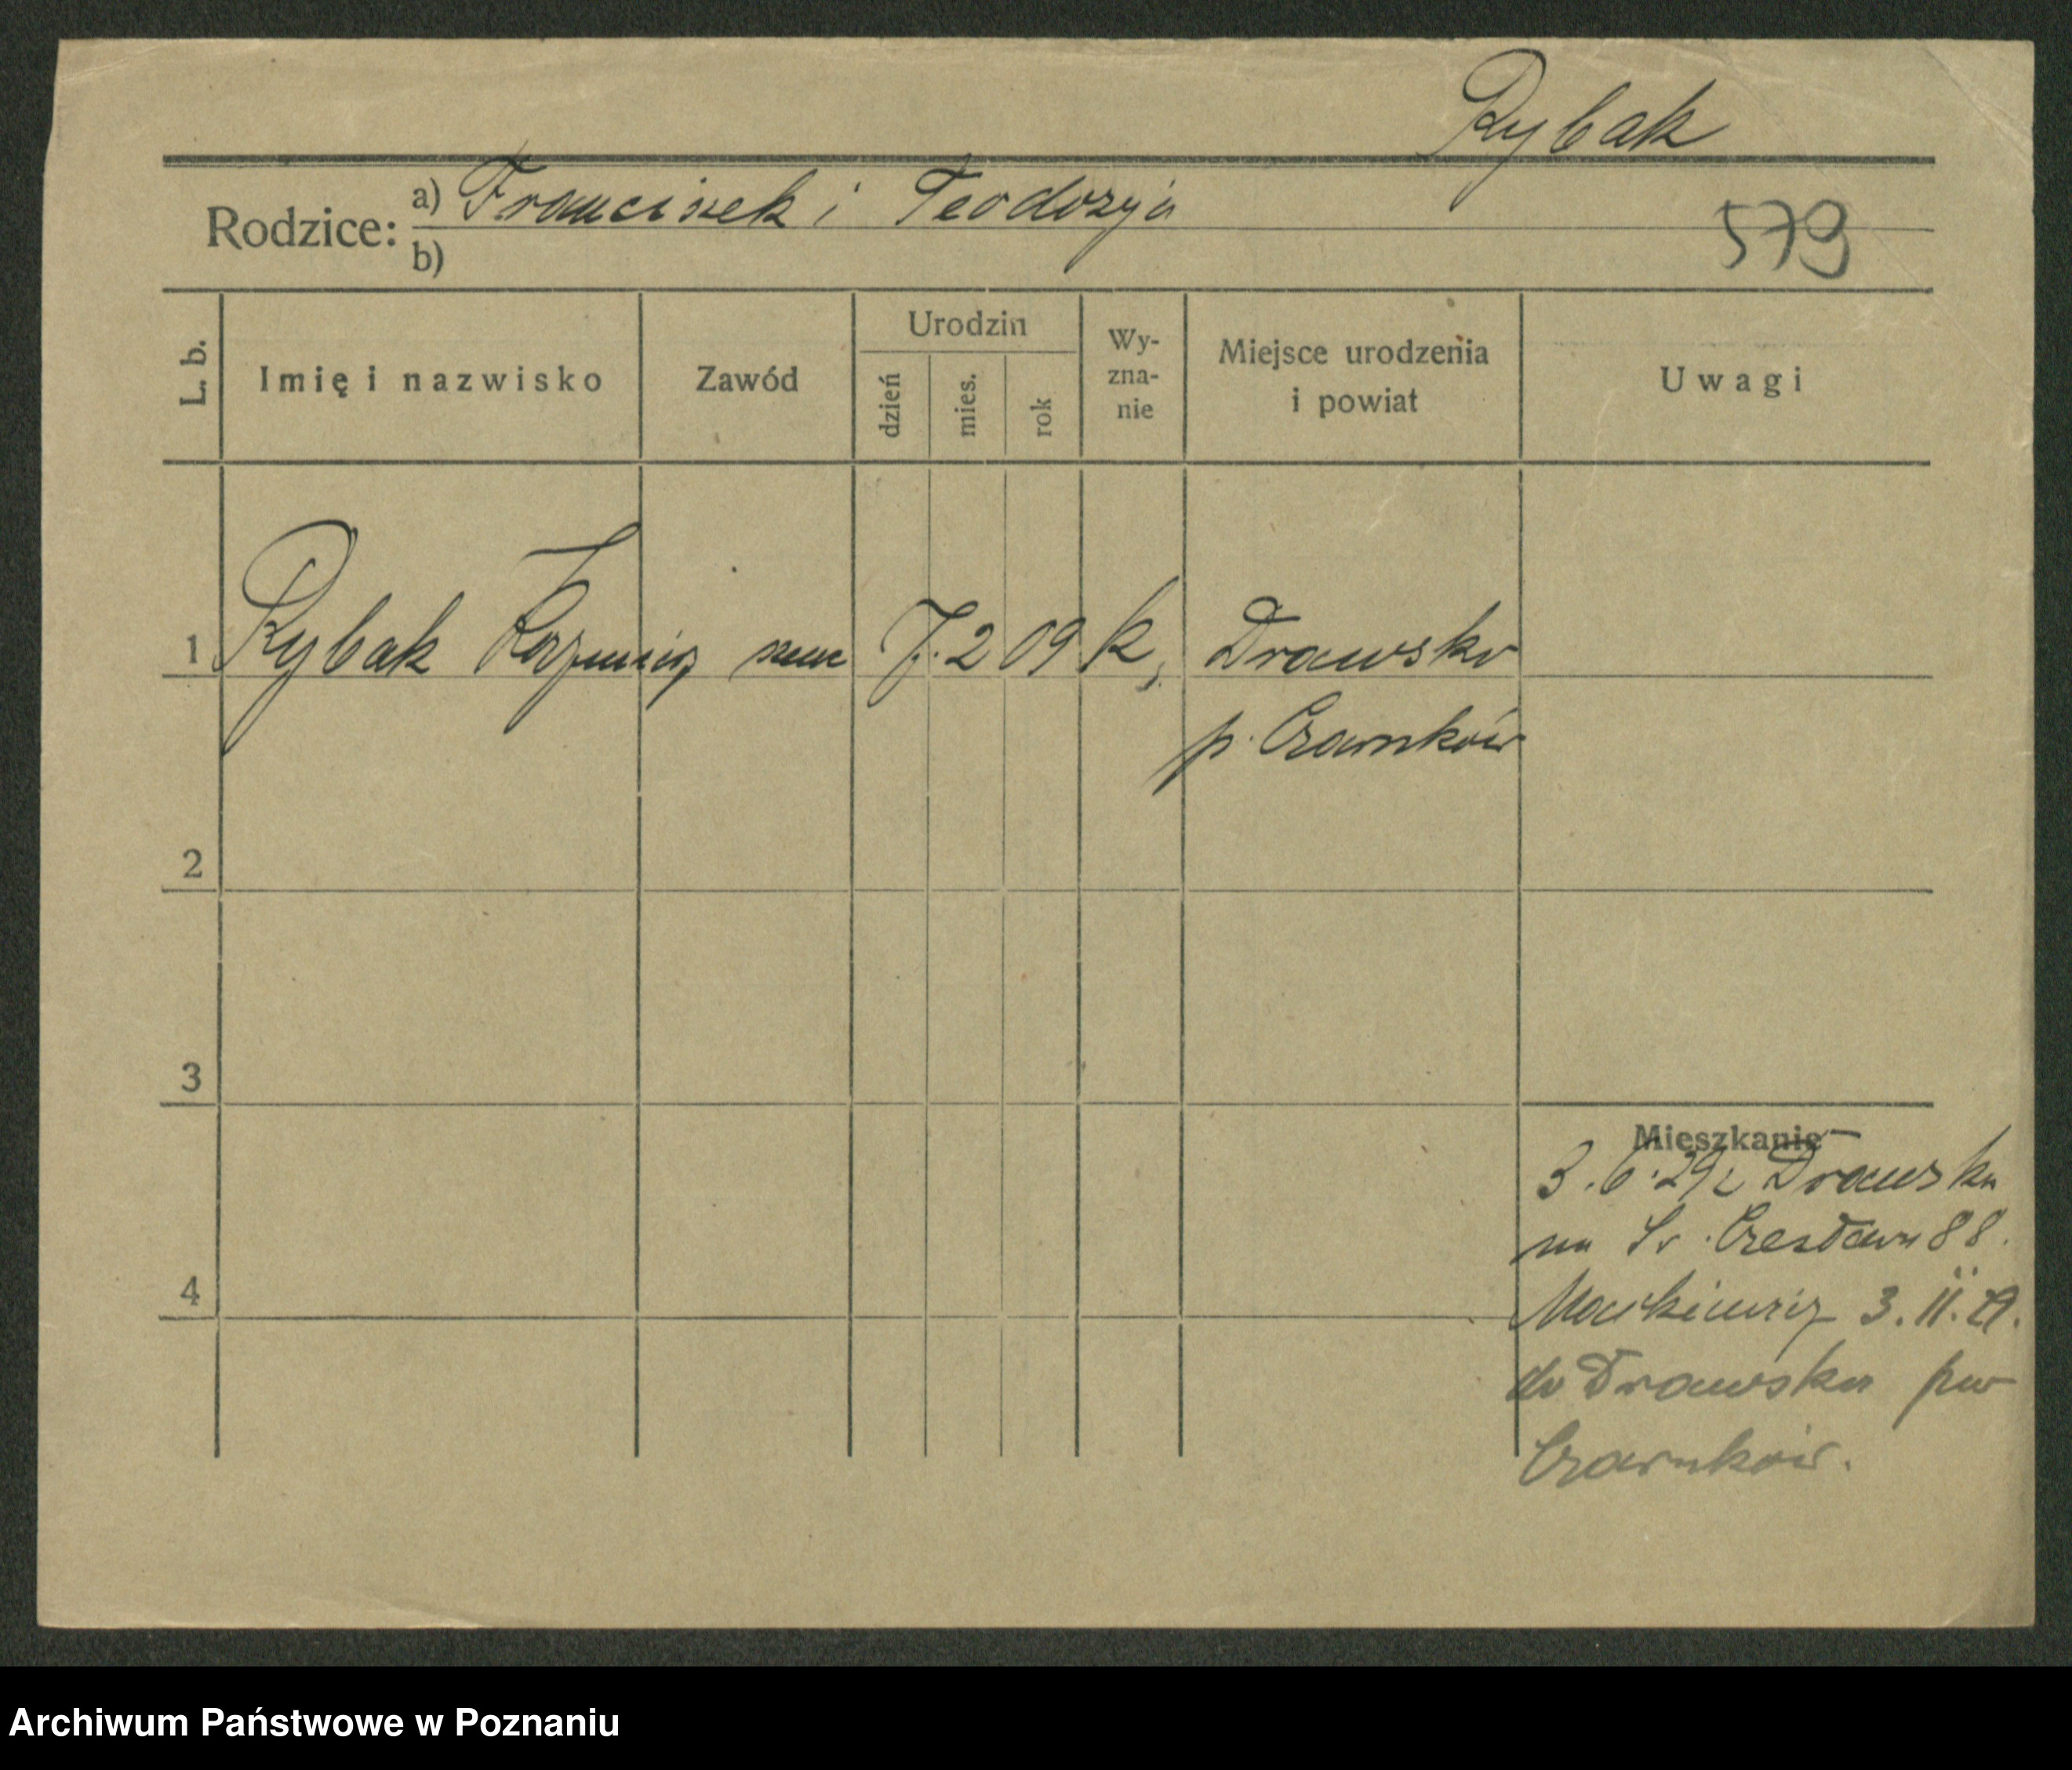 Rybak
Rodzice: a) Franciszek i Teodozya
b)
579
L. b.
Imię i nazwisko
Zawód
Urodzin
dzień
mies.
rok
Wy-
zna-
nie
Miejsce urodzenia
i powiat
Uwagi
1 Rybak Kazimierz 7. 2 09 k, Drawsko
p. Czarnków
2
3
4
Mieszkanie
3.6.29 z Drawska
na Czesława 88.
3.11.29.
do Drawska pow
Czarnków.
Archiwum Państwowe w Poznaniu